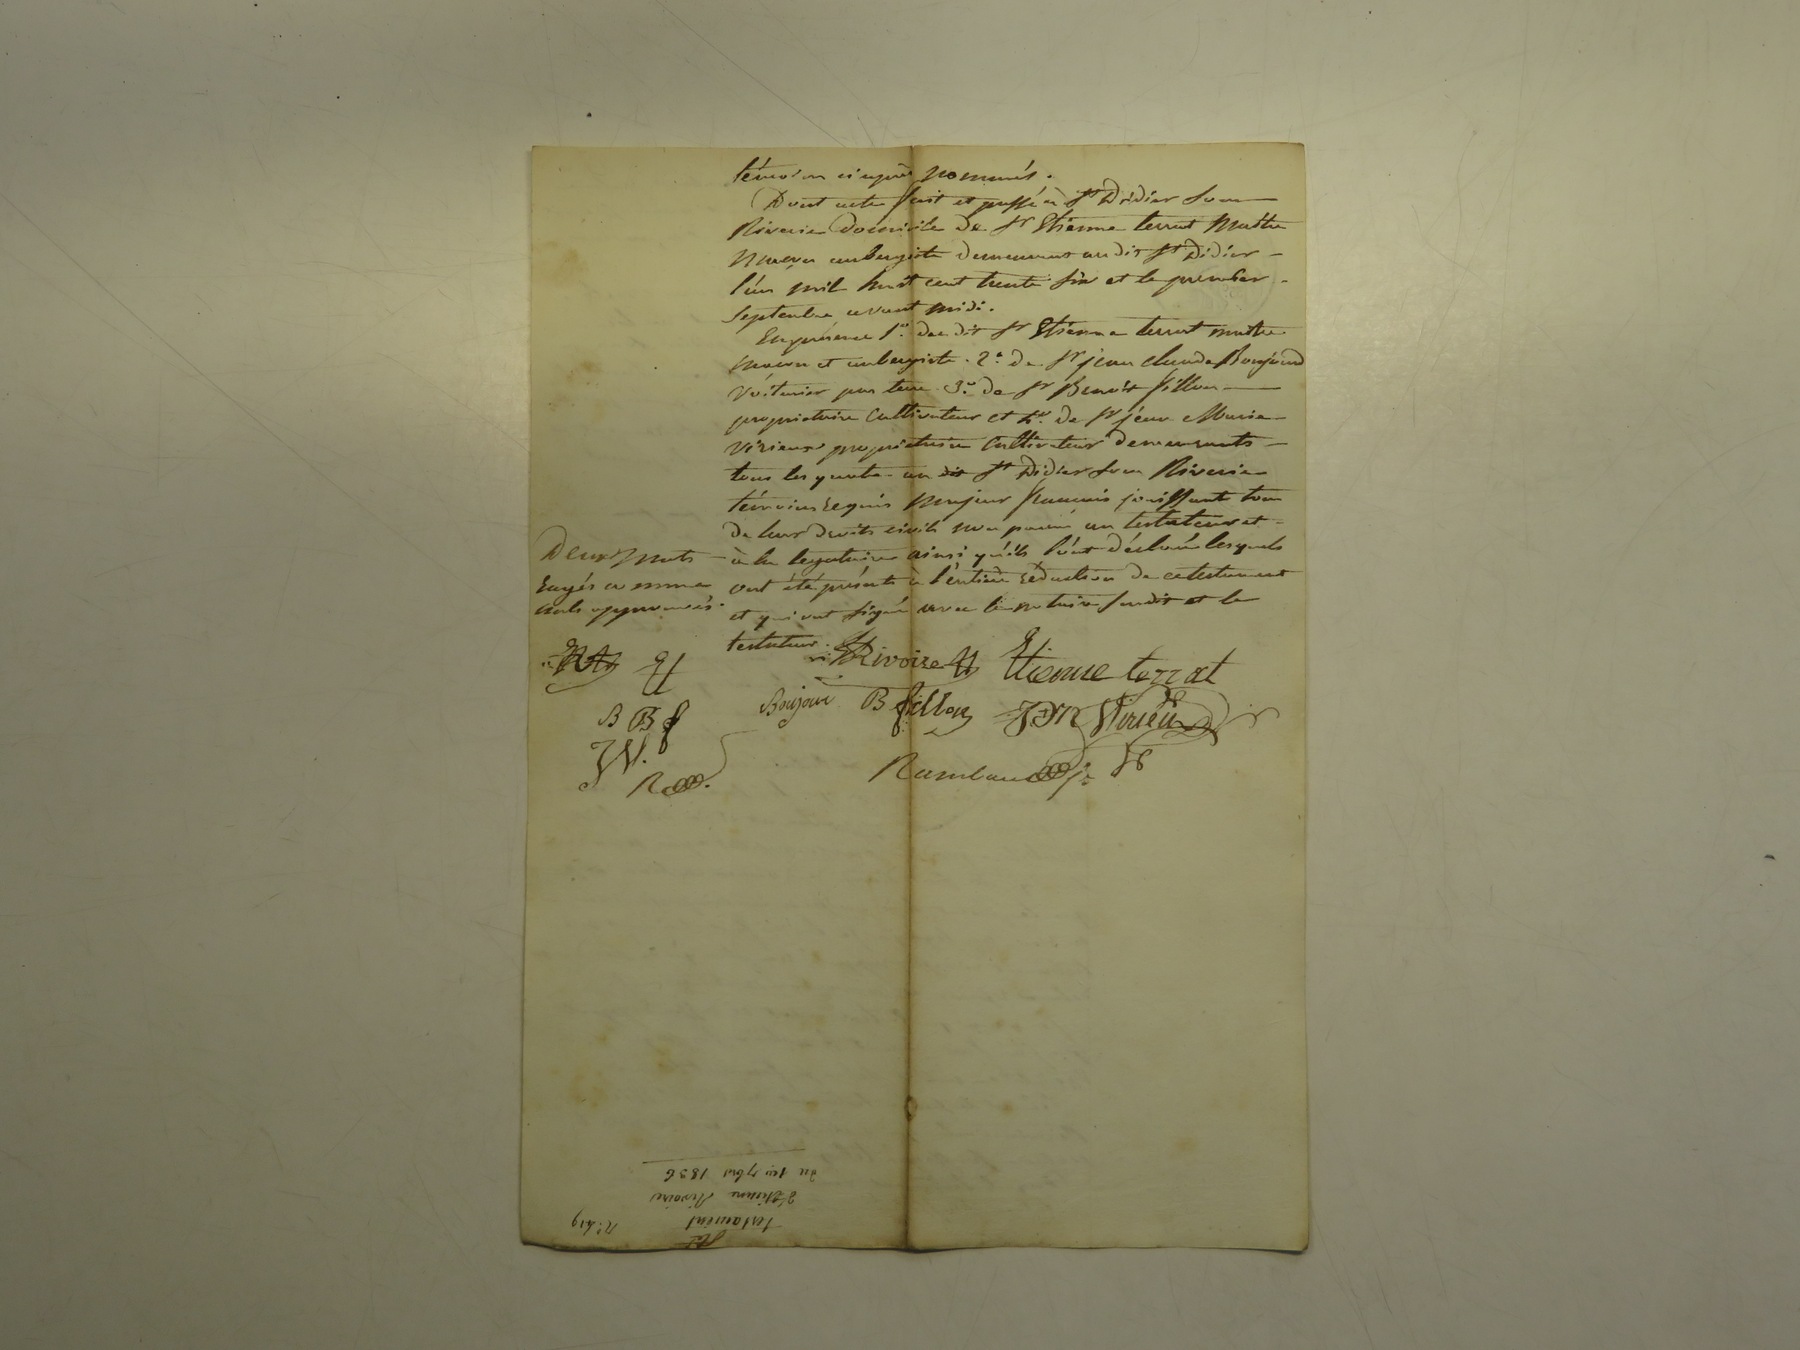 témoin ci après nommés.
Dont acte fait et passé à St Didier sous
Riverie domicile de Sr Etienne terrat Maître
Maçon aubergiste demeurant audit St Didier
l'an mil huit cent trente six et le premier
Septembre avant midi.
En présence 1º. dudit Sr Etienne terrat maître
maçon et aubergiste. 2º. de Sr jean claude Bonjour
Voiturier par terre 3º. de Sr Benoit fillon
propriétaire Cultivateur et 4º. de Sr jean Marie
Virieux propriétaire Cultivateur demeurants
tous les quatre au dit St Didier sous Riverie
témoins requis majeur francais jouissant tous
de leur droits civils non parents au testateur et
à la legataire ainsi qu'ils l'ont déclaré lesquels
ont été présents à l'entière rédaction de ce testament
et qui ont signé avec le notaire susdit et le
testateur.
Deux mots
rayés comme
nuls approuvés.
Rivoire
Etienne terrat
Bonjour
B fillon
JM Virieu
B B f
JV.
Rambaud
N.º 419
testament
d'Etienne Rivoire
du 1er 7bre 1836